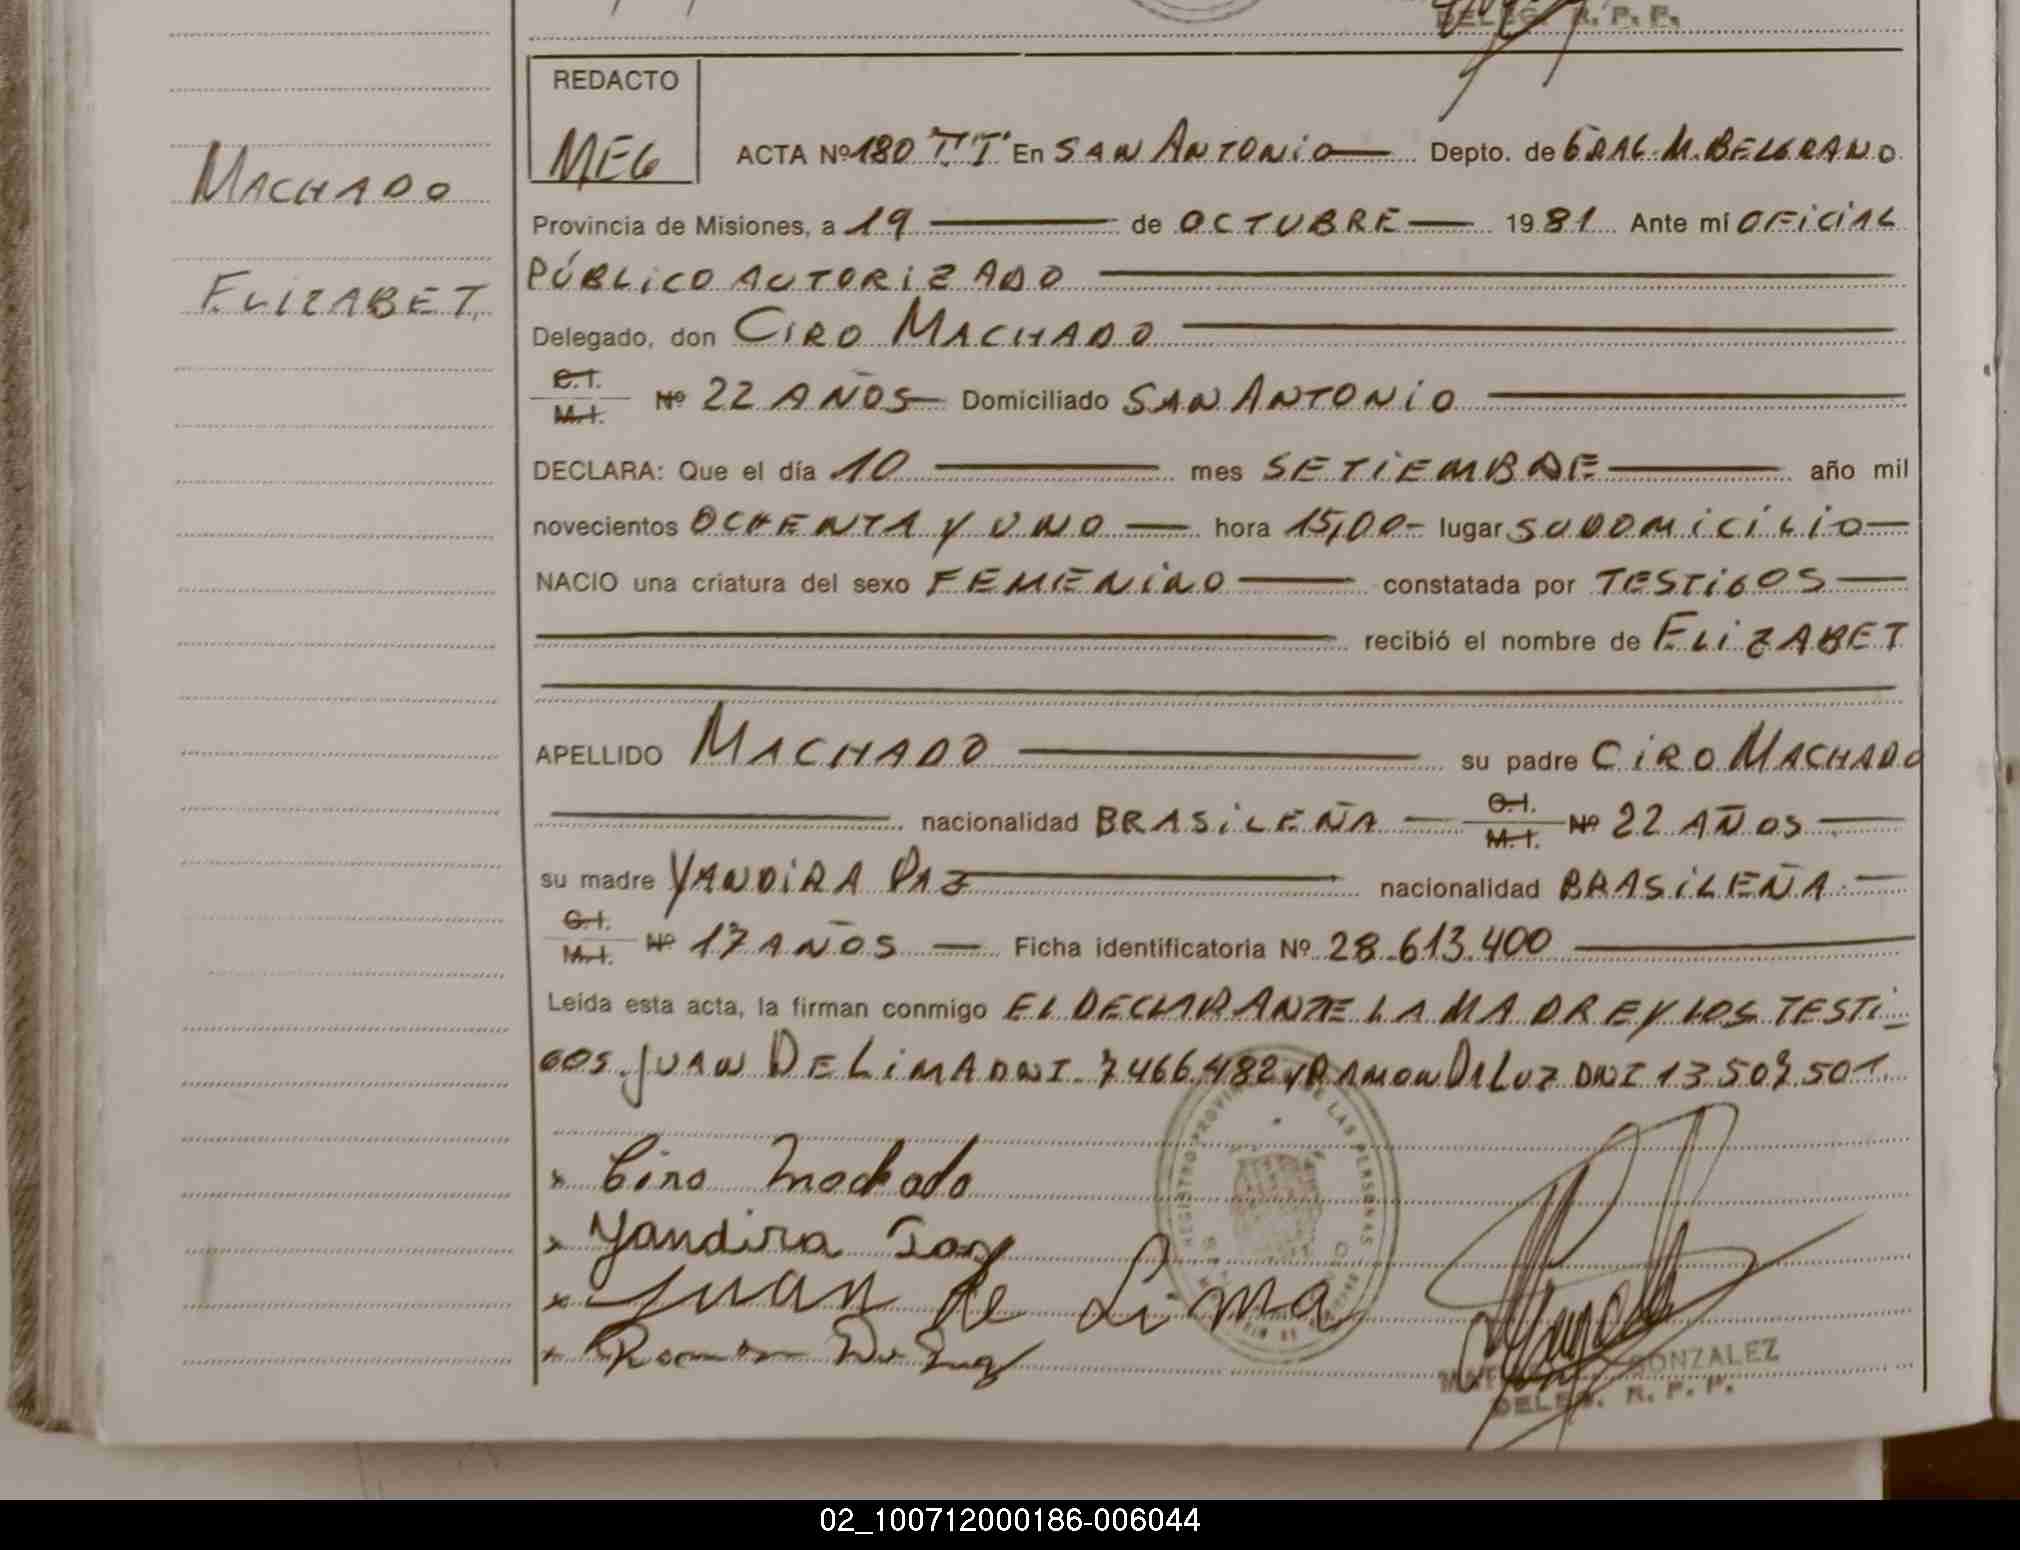 DELEG. R. P. P.
REDACTO
MEG
ACTA Nº 180 TºI° En SAN ANTONIO Depto. de GRAL. M. BELGRANO
MACHADO
Provincia de Misiones, a 19 de OCTUBRE 1981 Ante mí OFICIAL
PÚBLICO AUTORIZADO
ELIZABET
Delegado, don CIRO MACHADO
C.I.
M.I. Nº 22 AÑOS Domiciliado SAN ANTONIO
DECLARA: Que el día 10 mes SETIEMBRE año mil
novecientos OCHENTA Y UNO hora 15,00- lugar SU DOMICILIO
NACIO una criatura del sexo FEMENINO constatada por TESTIGOS
recibió el nombre de ELIZABET
APELLIDO MACHADO su padre CIRO MACHADO
nacionalidad BRASILEÑA C.I. M.I. Nº 22 AÑOS
su madre YANDIRA PAZ nacionalidad BRASILEÑA
C.I.
M.I. Nº 17 AÑOS Ficha identificatoria Nº 28.613.400
Leída esta acta, la firman conmigo EL DECLARANTE LA MADRE Y LOS TESTI-
GOS JUAN DE LIMA DNI 7466.482 y RAMON DA LUZ DNI 13.507.501
Ciro Machado
Yandira Paz
Juan de Lima
Ramon Da Luz
REGISTRO PROVINCIAL DE LAS PERSONAS
GONZALEZ
DELEG. R. P. P.
02_100712000186-006044